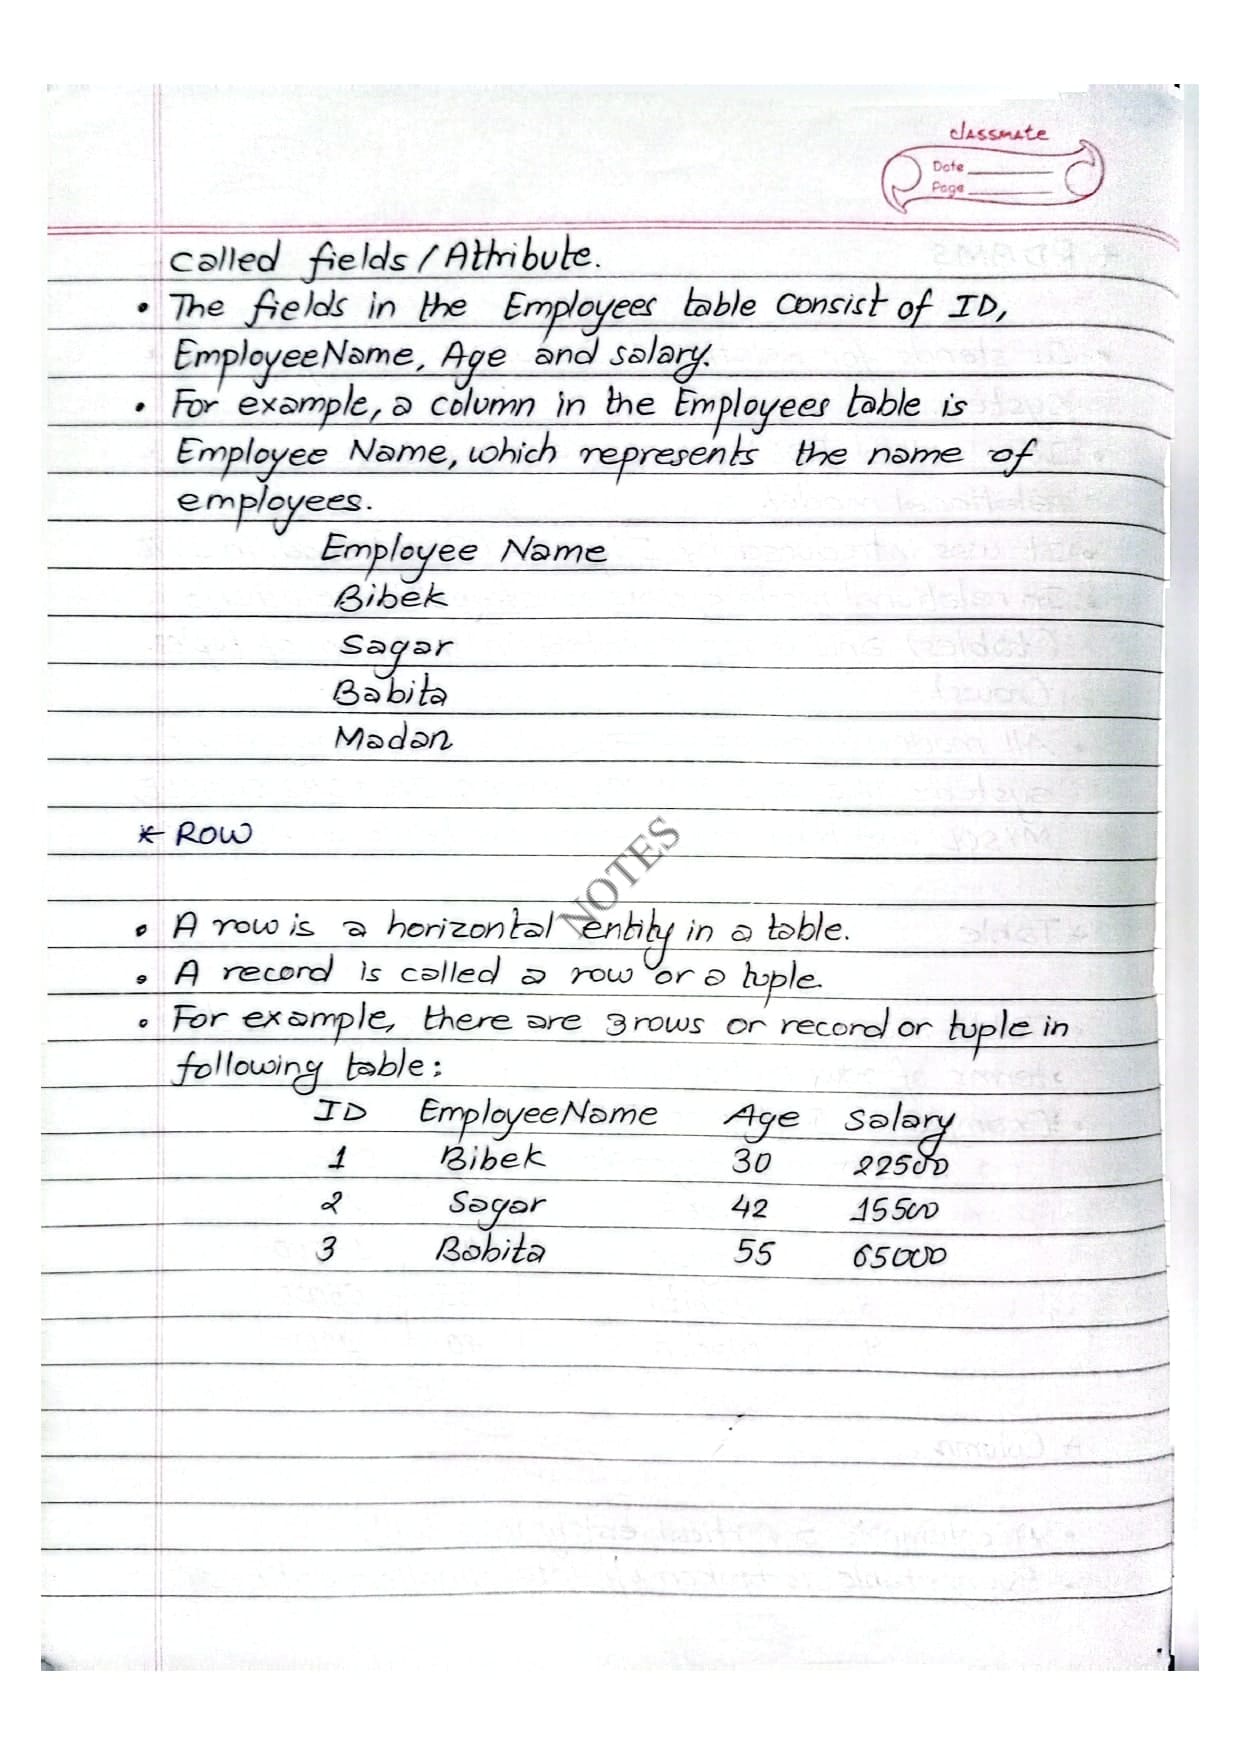 classmate
Date
Page
called fields / Attribute.
• The fields in the Employees table consist of ID,
EmployeeName, Age and salary.
• For example, a column in the Employees table is
Employee Name, which represents the name of
employees.
Employee Name
Bibek
Sagar
Babita
Madan
* ROW
NOTES
• A row is a horizontal entity in a table.
• A record is called a row or a tuple.
• For example, there are 3 rows or record or tuple in
following table:
ID EmployeeName Age Salary
1 Bibek 30 22500
2 Sagar 42 15500
3 Babita 55 65000